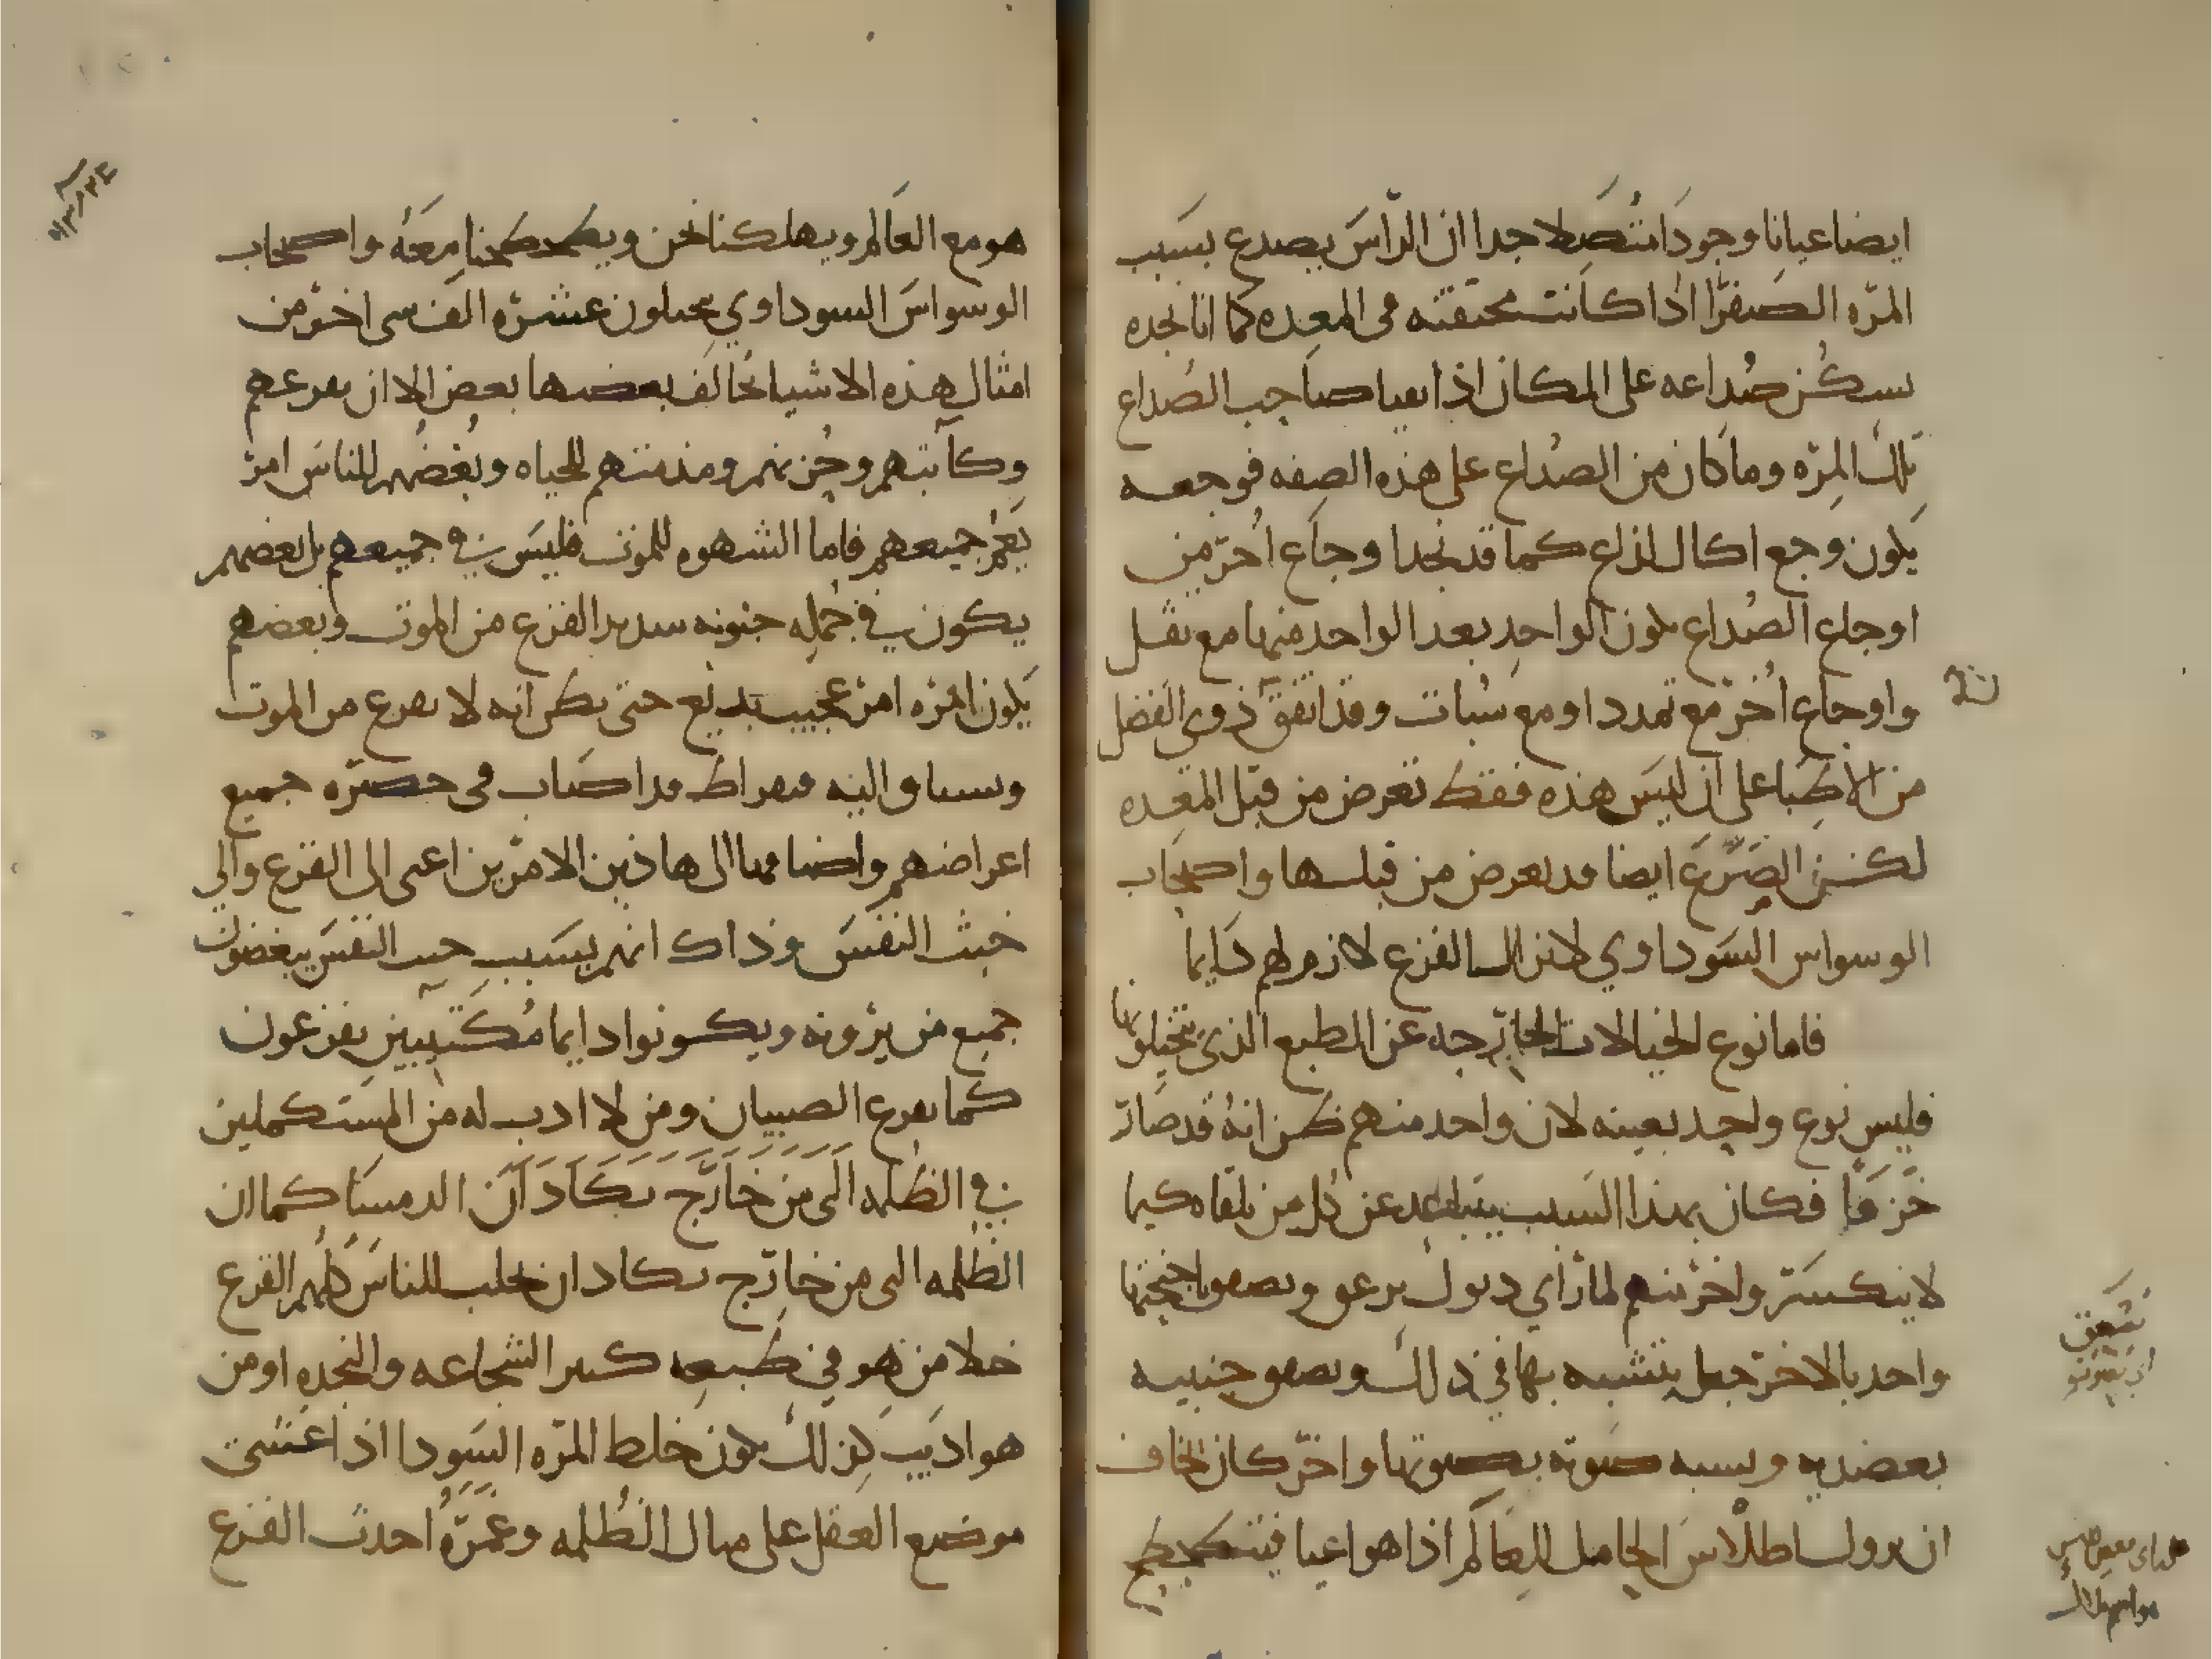 ايضا عيانا وجودا متصلا جدا ان الراس يصدع بسبب
المره الصفرا اذا كانت محتقنه فى المعده كما انا نجده
يسكن صداعه على المكان اذا تقيا صاحب الصداع
تلك المره وما كان من الصداع على هذه الصفه فوجعه
يكون وجع اكال لذاع كما قد نجد اوجاع اخر من
اوجاع الصداع يكون الواحد بعد الواحد منها مع ثقل
واوجاع اخر مع تمدد او مع سبات وقد اتفق ذوي الفضل
من الاطبا على ان ليس هذه فقط تعرض من قبل المعده
لكن الصرع ايضا قد يعرض من قبلها واصحاب
الوسواس السوداوي لا يزال الفزع لازم لهم دايما
فاما نوع الخيالات الخارجه عن الطبع الذي يتخيلونها
فليس نوع واحد بعينه لان واحد منهم ظن انه قد صار
خزفا فكان بهذا السبب يتباعد عن كل من يلقاه كيما
لا ينكسر واخر منهم لما راي ديوك تزعق وتصفق اجنحتها
واحد بالاخر جعل يتشبه بها في ذلك ويصفق جنبيه
بعضديه ويشبه صوته بصوتها واخر كان يخاف
ان يزول اطلاس الحامل للعالم اذا هو اعيا فينطحطح
هو مع العالم ويهلكنا نحن ويطحطحنا معه واصحاب
الوسواس السوداوي يتخيلون عشره الف شى اخر من
امثال هذه الاشيا يخالف بعضها بعض الا ان تفزعهم
وكآبتهم وحزنهم ومذمتهم للحياه وبغضهم للناس امر
يعم جميعهم فاما الشهوه للموت فليس في جميعهم بل بعضهم
يكون في جمله جنونه شديد الفزع من الموت وبعضهم
يكون امره امر عجيب بديع حتى يظن انه لا يفزع من الموت
ويشتاق اليه فبقراط قد اصاب فى حصره جميع
اعراضهم واضافتها الى هاذين الامرين اعنى الى الفزع والى
خبث النفس وذاك انهم بسبب خبث النفس يبغضون
جميع من يرونه ويكونوا دايما مكتيبين يفزعون
كما يفزع الصبيان ومن لا ادب له من المستكملين
في الظلمه التى من خارج تكاد ان الد مسا كما ان
الظلمه التى من خارج تكاد ان تجلب للناس كلهم الفزع
خلا من هو في طبعه كثير الشجاعه والنجده او من
هو اديب كذلك يكون خلط المره السودا اذا غشى
موضع العقل على مثال الظلمه وغمره احدث الفزع